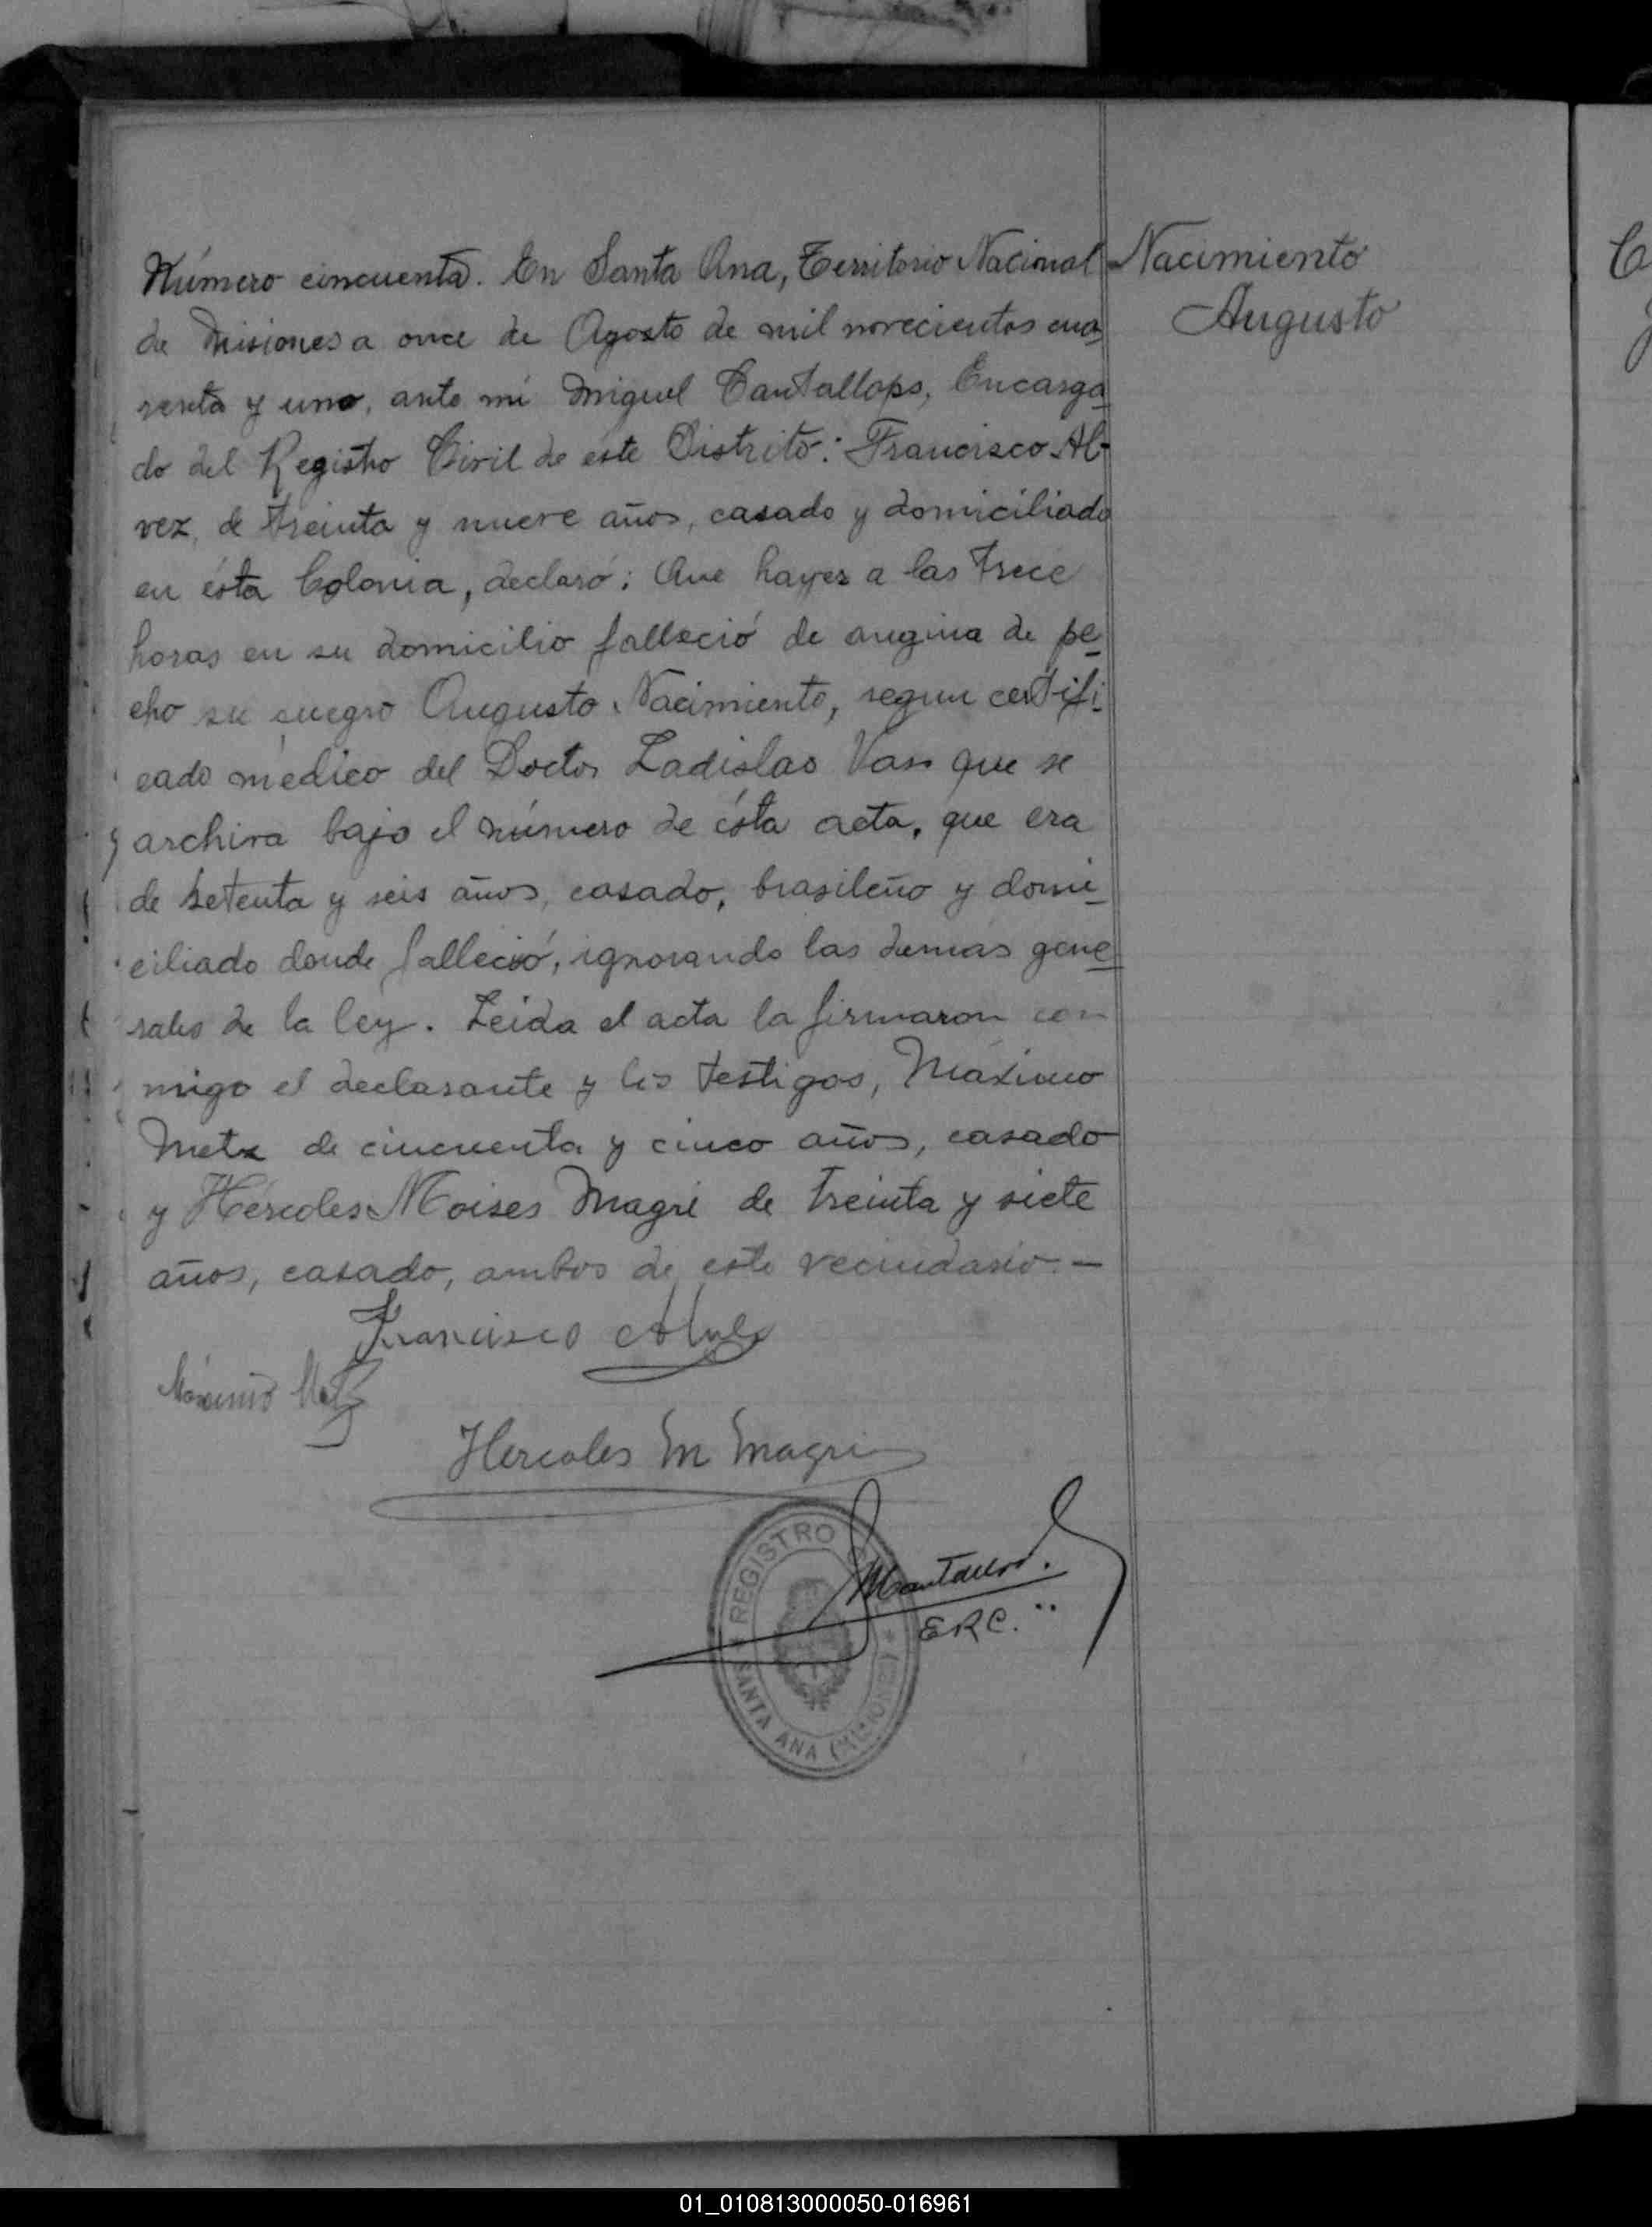 Número cincuenta. En Santa Ana, Territorio Nacional
de Misiones a once de Agosto de mil novecientos cua
renta y uno, ante mi Miguel Cantallops, Encarga
do del Registro Civil de este Distrito: Francisco Al-
vez, de treinta y nueve años, casado y domiciliado
en ésta Colonia, declaró: Que hayer a las trece
horas en su domicilio falleció de angina de pe
cho su suegro Augusto Nacimiento, segun certifi
cado médico del Doctor Ladislao Vass que se
archiva bajo el número de ésta acta, que era
de setenta y seis años, casado, brasileño y domi
ciliado donde falleció, ignorando las demas gene
rales de la ley. Leida el acta la firmaron con
migo el declarante y los testigos, Máximo
Metz de cincuenta y cinco años, casado
y Hércoles Moises Magri de treinta y siete
años, casado, ambos de este vecindario.-
Nacimiento
Augusto
Francisco Alvez
Máximo Metz
Hercoles M Magri
MCantallops.
E.R.C.
REGISTRO CIVIL
* SANTA ANA (MISIONES) *
01_010813000050-016961